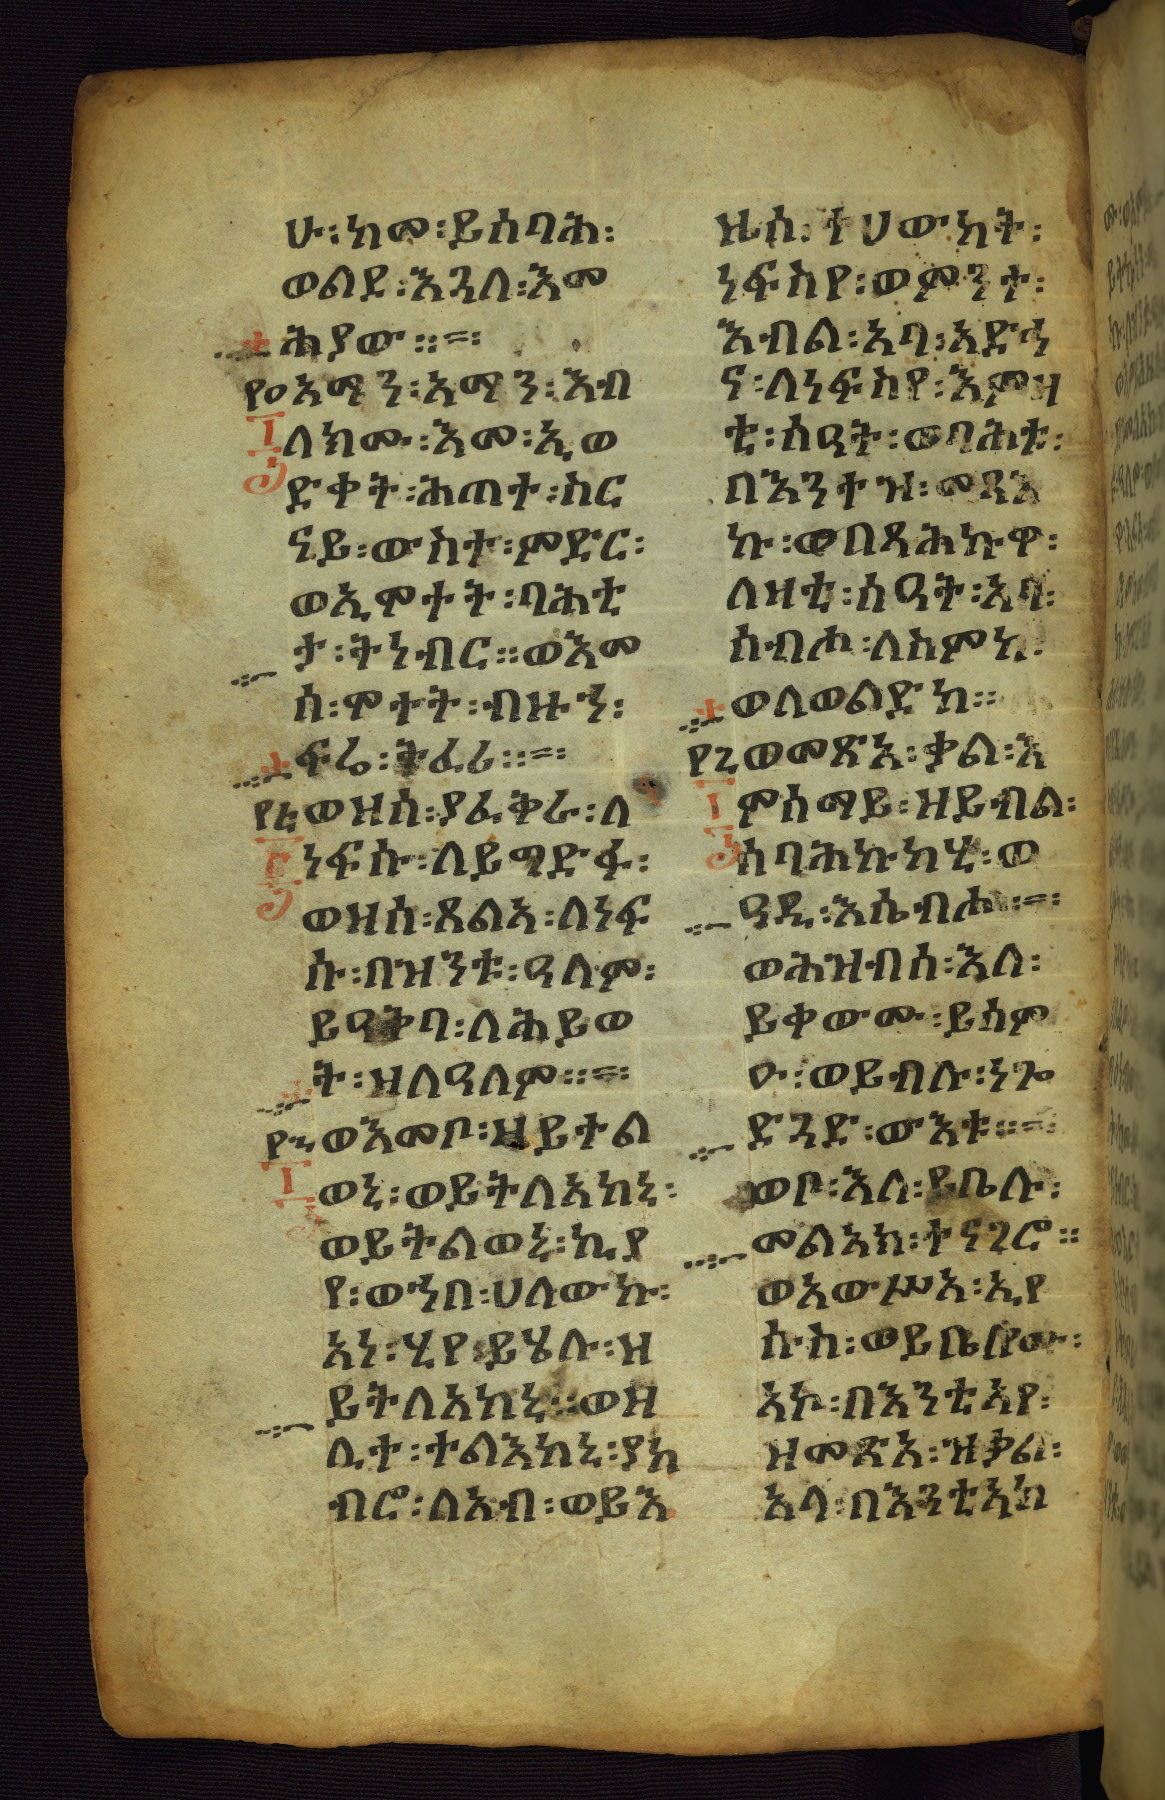 ሁ፡ከመ፡ይሰባሕ፡
ወልደ፡እጓለ፡እመ
ሕያው።=፡
፻፴ አማን፡አማን፡እብ
ለክሙ፡እመ፡ኢወ
ድቀት፡ሕጠተ፡ስር
ናይ፡ውስተ፡ምድር፡
ወኢሞተት፡ባሕቲ
ታ፡ትነብር።ወእመ
ሰ፡ሞተት፡ብዙኅ፡
ፍሬ፡ትፈሪ።=፡
ወዝሰ፡ያፈቅራ፡ለ
ነፍሱ፡ለይግድፋ፡
ወዝሰ፡ጸልአ፡ለነፍ
ሱ፡በዝንቱ፡ዓለም፡
ይዐቅባ፡ለሕይወ
ት፡ዘለዓለም።=፡
ወእመቦ፡ዘይተል
ወኒ፡ወይትለአከኒ፡
ወይትልወኒ፡ኪያ
የ፡ወኀበ፡ሀለውኩ፡
አነ፡ህየ፡ይሄሉ፡ዝ
ይትለአከኒ።ወዘ
ሊተ፡ተልእከኒ፡ያከ
ብሮ፡ለአብ፡ወይእ
ዜሰ፡ተሀውከት፡
ነፍስየ፡ወምንተ፡
እብል፡አባ፡አድኅ
ና፡ለነፍስየ፡እምዛ
ቲ፡ሰዓት፡ወባሕቱ፡
በእንተዝ፡መጻእ
ኩ፡ወበጻሕኩዋ፡
ለዛቲ፡ሰዓት፡አባ፡
ሰብሖ፡ለስምከ፡
ወለወልድከ።
ወመጽአ፡ቃል፡እ
ምሰማይ፡ዘይብል፡
ሰባሕኩከሂ፡ወ
ዓዲ፡እሴብሐ።=፡
ወሕዝብሰ፡እለ፡
ይቀውሙ፡ይሰም
ዑ፡ወይብሉ፡ነጐ
ድጓድ፡ውእቱ።=፡
ወቦ፡እለ፡ይቤሉ፡
መልአክ፡ተናገሮ።
ወአውሥአ፡ኢየ
ሱስ፡ወይቤሎሙ፡
አኮ፡በእንቲአየ፡
ዘመጽአ፡ዝቃል፡
አላ፡በእንቲአክ